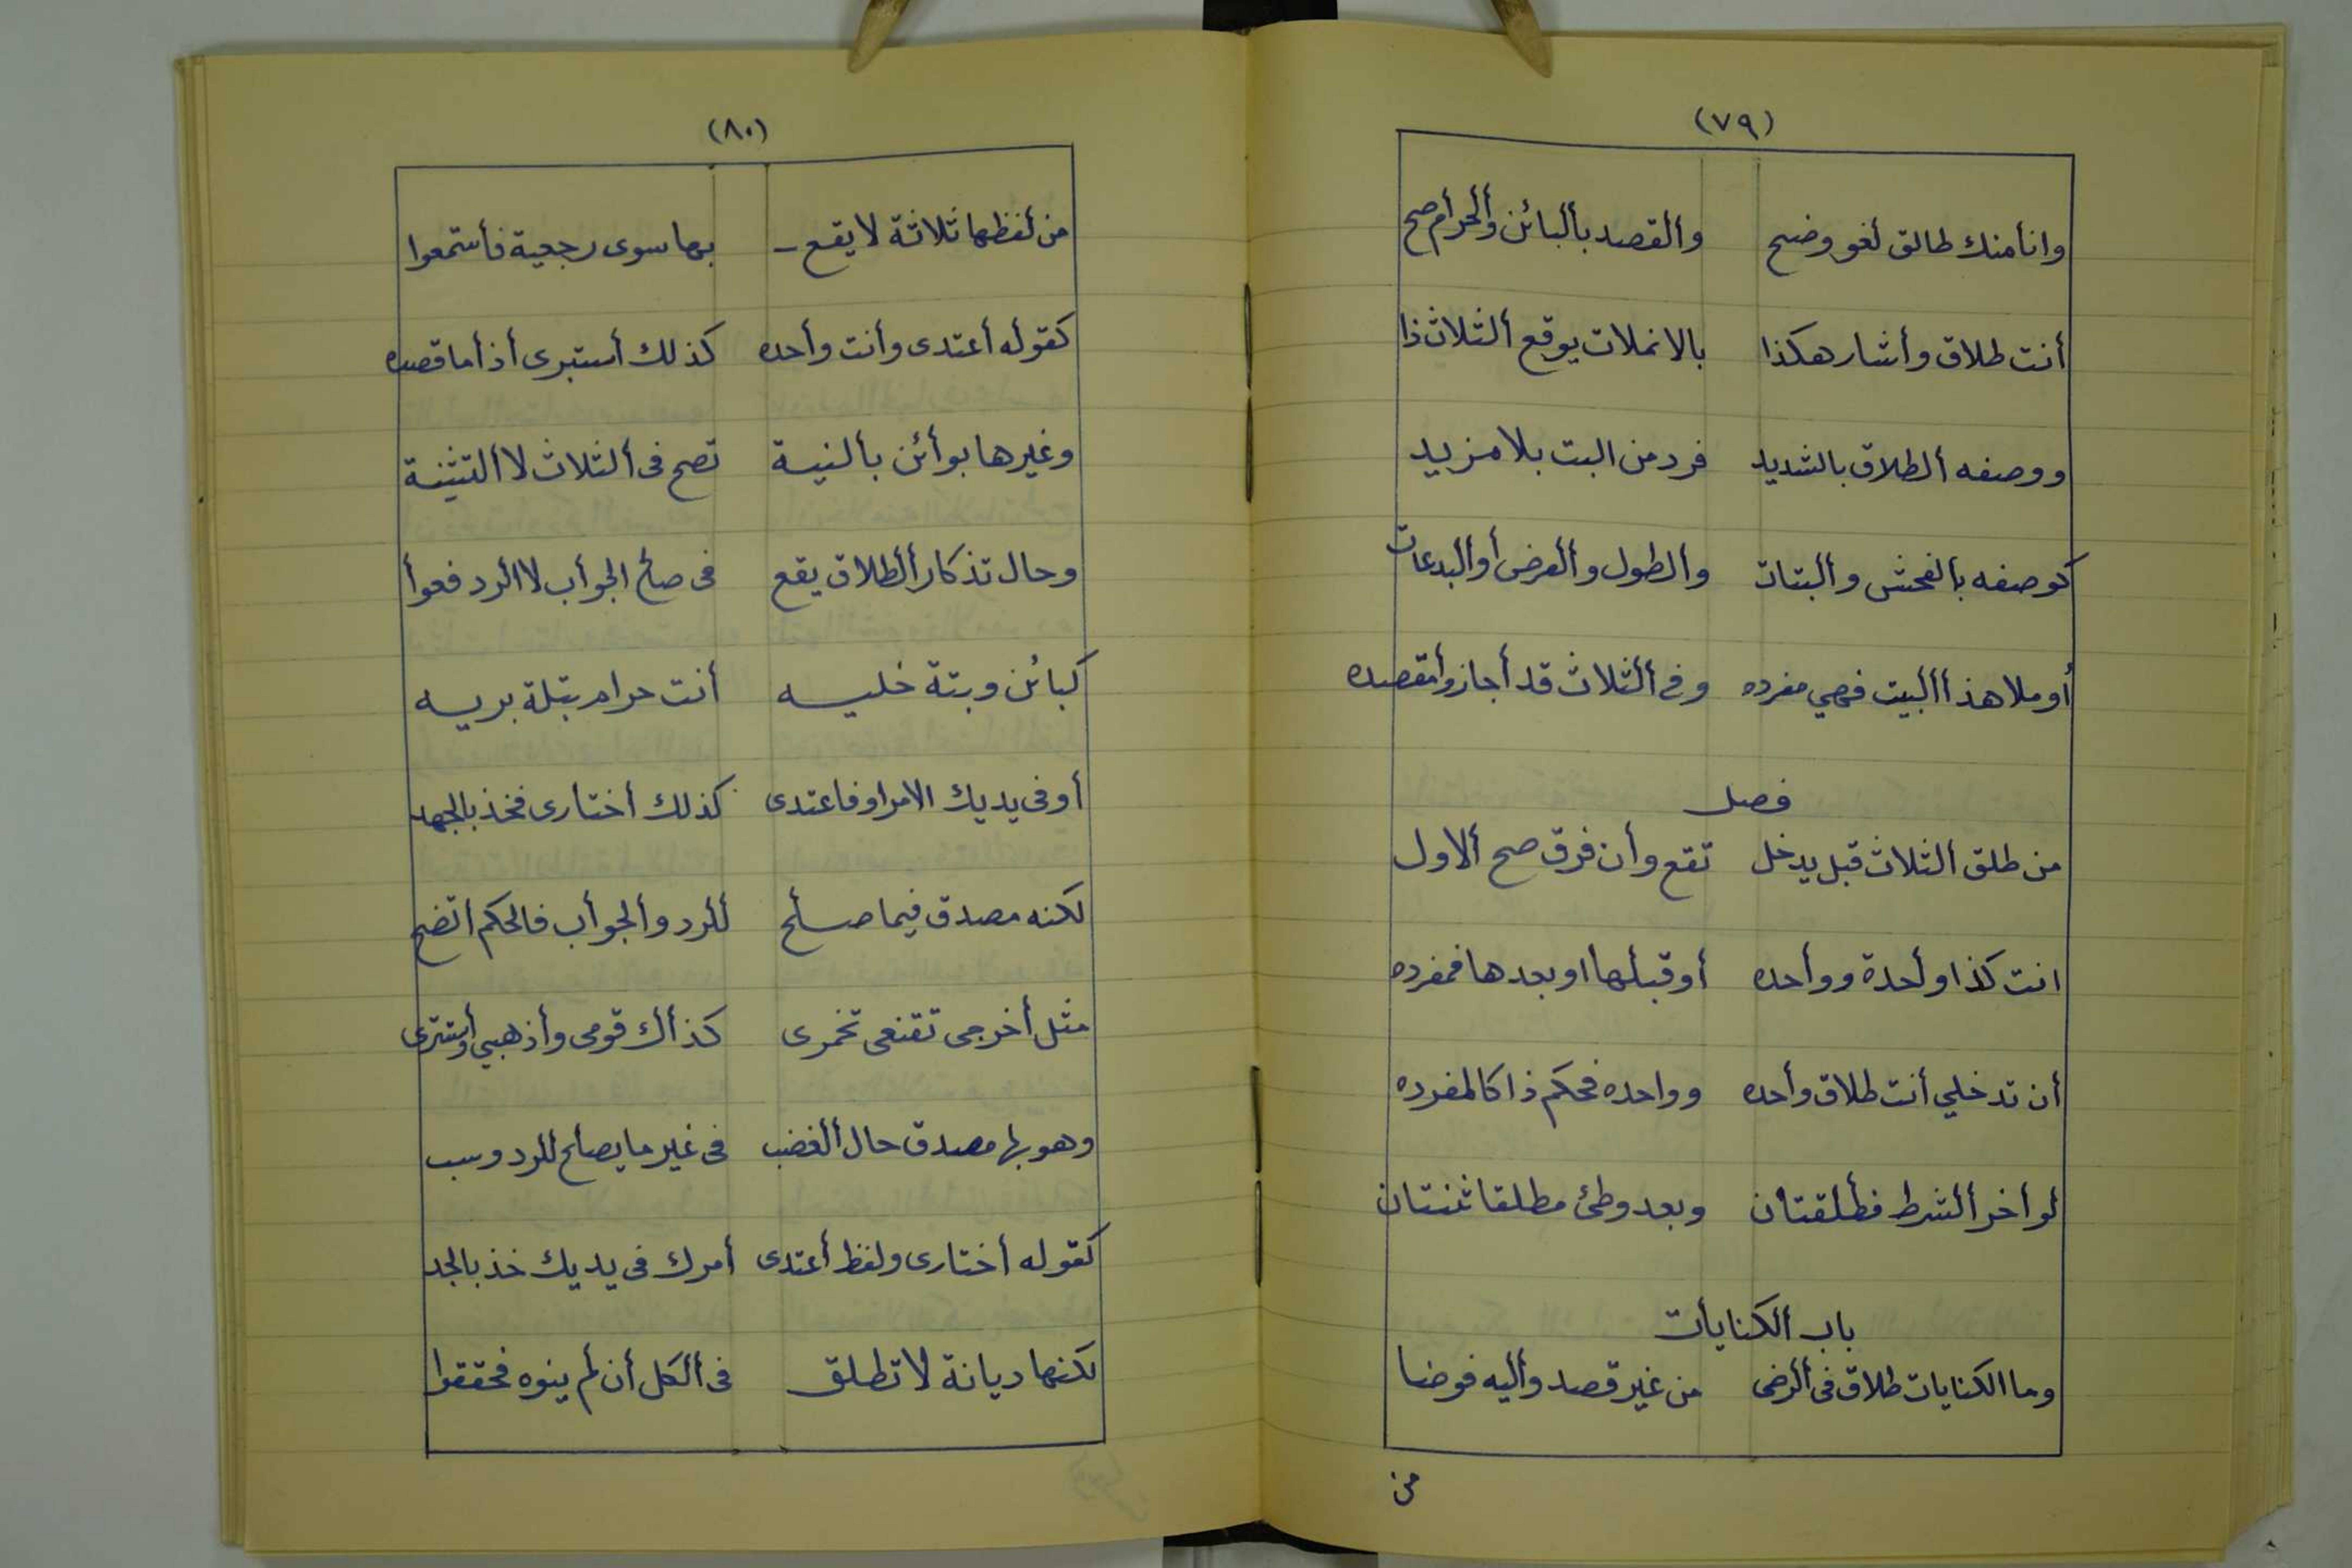 (٧٩)
وانأمنك طالق لغو وضح وألقصد بألبائن وألحرام صح
أنت طلاق وأشار هكذا بالانملات يوقع ألثلاث ذا
ووصفه ألطلاق بالشديد فرد من البت بلا مزيد
كوصفه بألفحش وألبتات وألطول وألعرض أو ألبدعات
أو ملا هذأ ألبيت فهي مفرده وفى ألثلاث قد أجازوأ مقصده
فصل
من طلق ألثلاث قبل يدخل تقع وأن فرق صح ألاول
انت كذا وأحدة ووأحده أو قبلها او بعدها فمفرده
أن تدخلي أنت طلاق وأحده وواحده فحكم ذا كالمفرده
لو أخر ألشرط فطلقتان وبعد وطئ مطلقا ثنتان
باب ألكنايأت
وما الكنايات طلاق فى ألرضى من غير قصد وأليه فوضا
من
(٨٠)
من لفظها ثلاثة لا يقع - بها سوى رجعية فأستمعوا
كقوله أعتدى وأنت وأحده كذلك أستبرى أذأ ما قصده
وغيرها بوأئن بألنية تصح فى ألثلاث لا ألتثنية
وحال تذكار ألطلاق يقع فى صالح الجوأب لا الرد فعوأ
كبائن وبتة خليه أنت حرام بتلة بريه
أو فى يديك الامر او فاعتدى كذلك أختارى فخذ بالجهد
لكنه مصدق فيما صلح للرد وألجوأب فالحكم أتضح
مثل أخرجى تقنعى تخمرى كذأك قومى وأذهبي أو أستترى
وهو بها مصدق حال ألغضب فى غير ما يصلح للرد وسب
كقوله أختارى ولفظ أعتدى أمرك فى يديك خذ بالجد
لكنها ديانة لا تطلق فى ألكل أن لم ينوه فحققوا